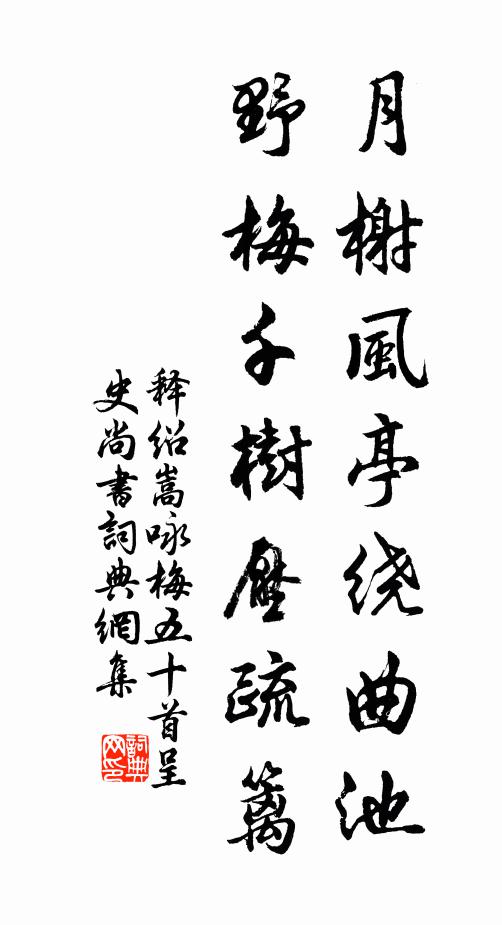 月榭風亭绕曲池
野梅千樹壓疏篱
释绍嵩咏梅五十首呈
史尚書詞典網集
詞典網印